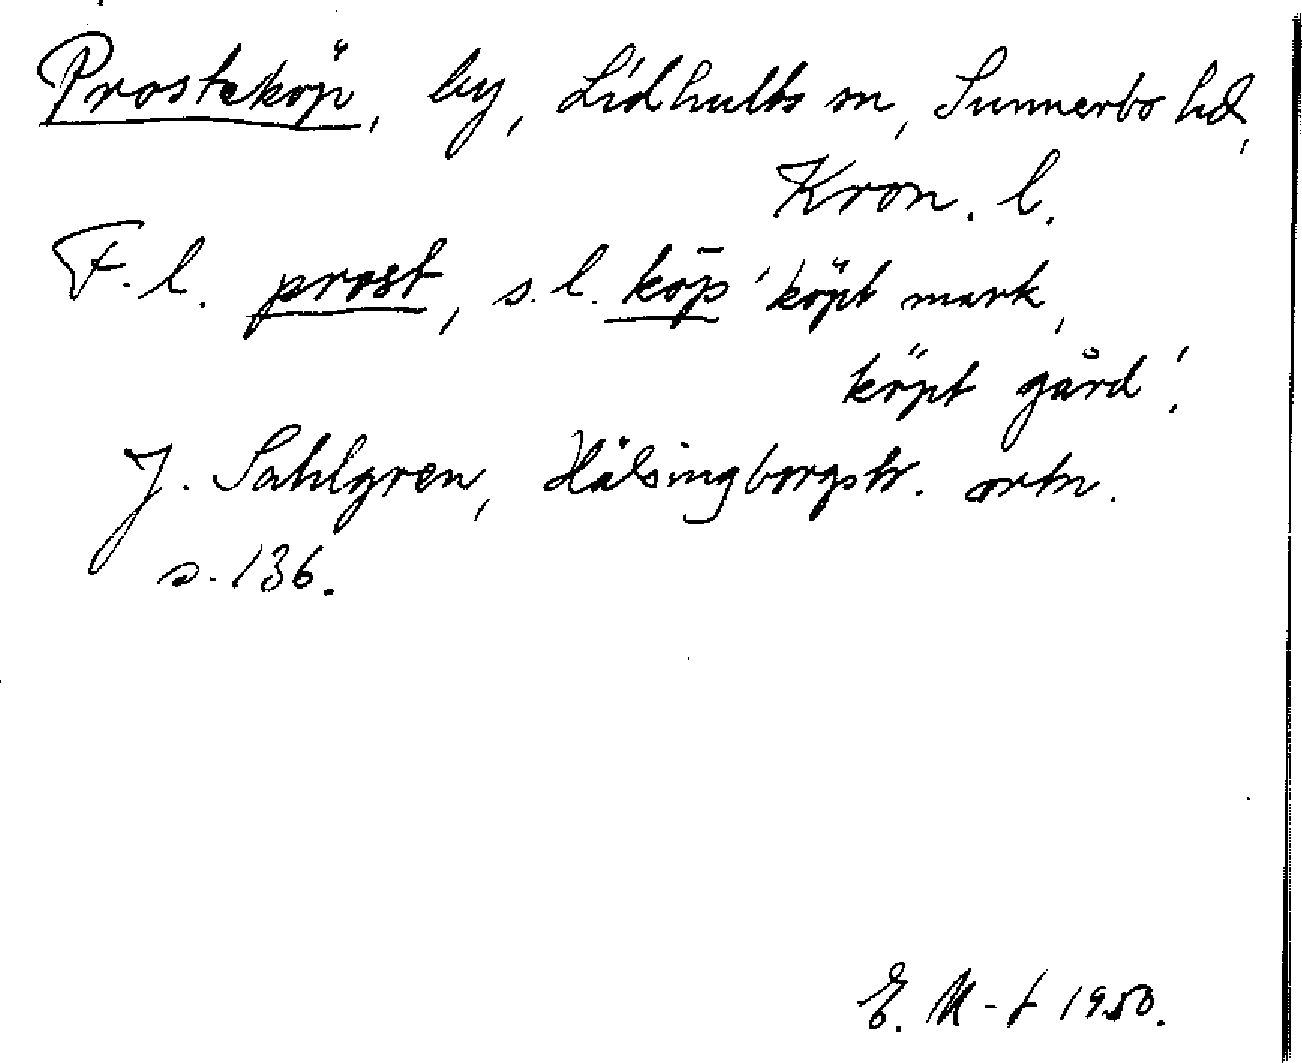 Prosteköp, by, Lidhults sn, Sunnerbo hd,
Kron. l.
F. l. prost, s. l. köp 'köpt mark,
köpt gård'.
J. Sahlgren, Hälsingborgstr. ortn.
s. 136.
E. M-t 1950.